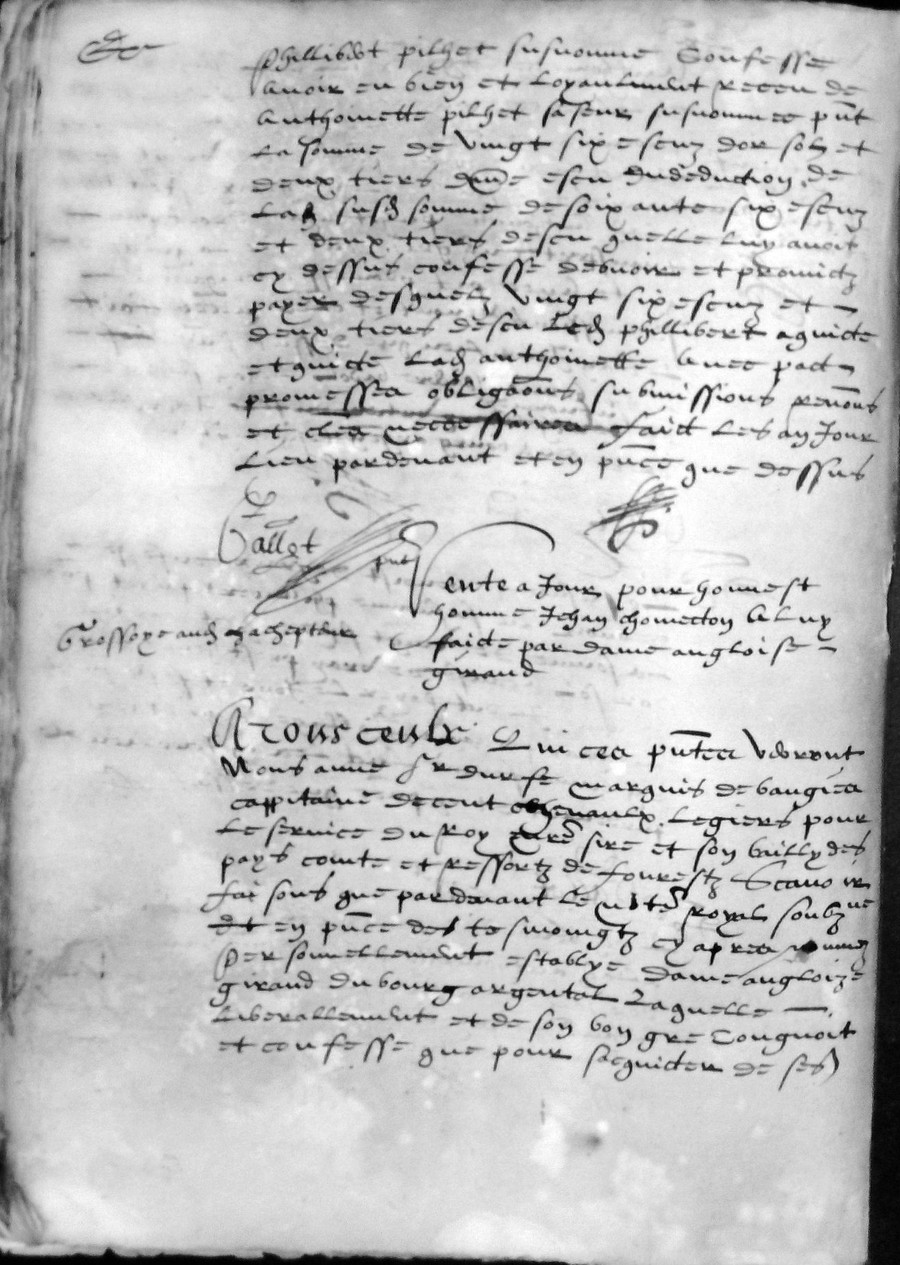 Phillibert pilhet susnomme Confesse
avoir eu bien et loyaulment receu de
Anthoinette pilhet sa seur susnommee pnt
La somme de Vingt six escuz dor solz et
deux tiers dune escu du deduction de
Lad susd somme de soixante six escuz
et deux tiers descu quelle luy avoit
cy dessus confesse debvoir et promictz
payer desquelz Vingt six escuz et
deux tiers descu Led Phillibert a quicte
et quicte Lad anthoinette Avec pact
promesses obligaons submissions renons
et cles necessaires faict Les an Jour
Lieu pardevant et en pnce que dessus
Gallot
Vente a Jour pour honnest
homme Jehan chometton A luy
faicte par dame angloise
giraud
Grossoye aud achepteur
A tous ceulx Qui ces pntes Verront
Nous anne sr durfe marquis de baugies
cappitaine de cent chevaulx Legiers pour
Le service du Roy nre sire et son bailly des
pays comte et ressortz de fourestz Scavoir
faisons que pardevant Le notr royal soubzne
et en pnce des tesmoingtz cy apres nommez
Personnellement establye dame angloize
giraud du bourg argental Laquelle
Liberallement et de son bon gre Congnoit
et confesse que pour sacquicter de ses